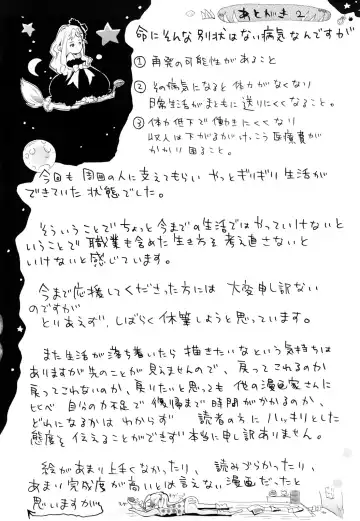 あとがき 2
命にそんな別状はない病気なんですが
① 再発の可能性があること
② その病気になると体力がなくなり
日常生活がまともに送りにくくなること。
③ 体力低下で働きにくくなり
収入は下がるがけっこう医療費が
かかり困ること。
今回も周囲の人に支えてもらいやっとギリギリ生活が
できていた状態でした。
そういうことでちょっと今までの生活ではやっていけないと
いうことで職業も含めた生き方を考え直さないと
いけないと感じています。
今まで応援してくださった方には大変申し訳ない
のですが
とりあえず、しばらく休筆しようと思っています。
また生活が落ち着いたら描きたいなという気持ちは
ありますが先のことが見えませんので、戻ってこれるのか
戻ってこれないのか、戻りたいと思っても他の漫画家さんに
比べ自分の力不足で復帰まで時間がかかるのか、
どれになるかはわからず読者の方にハッキリとした
態度を伝えることができず本当に申し訳ありません。
絵があまり上手くなかったり、読みづらかったり、
あまり完成度が高いとは言えない漫画だったと
思いますが